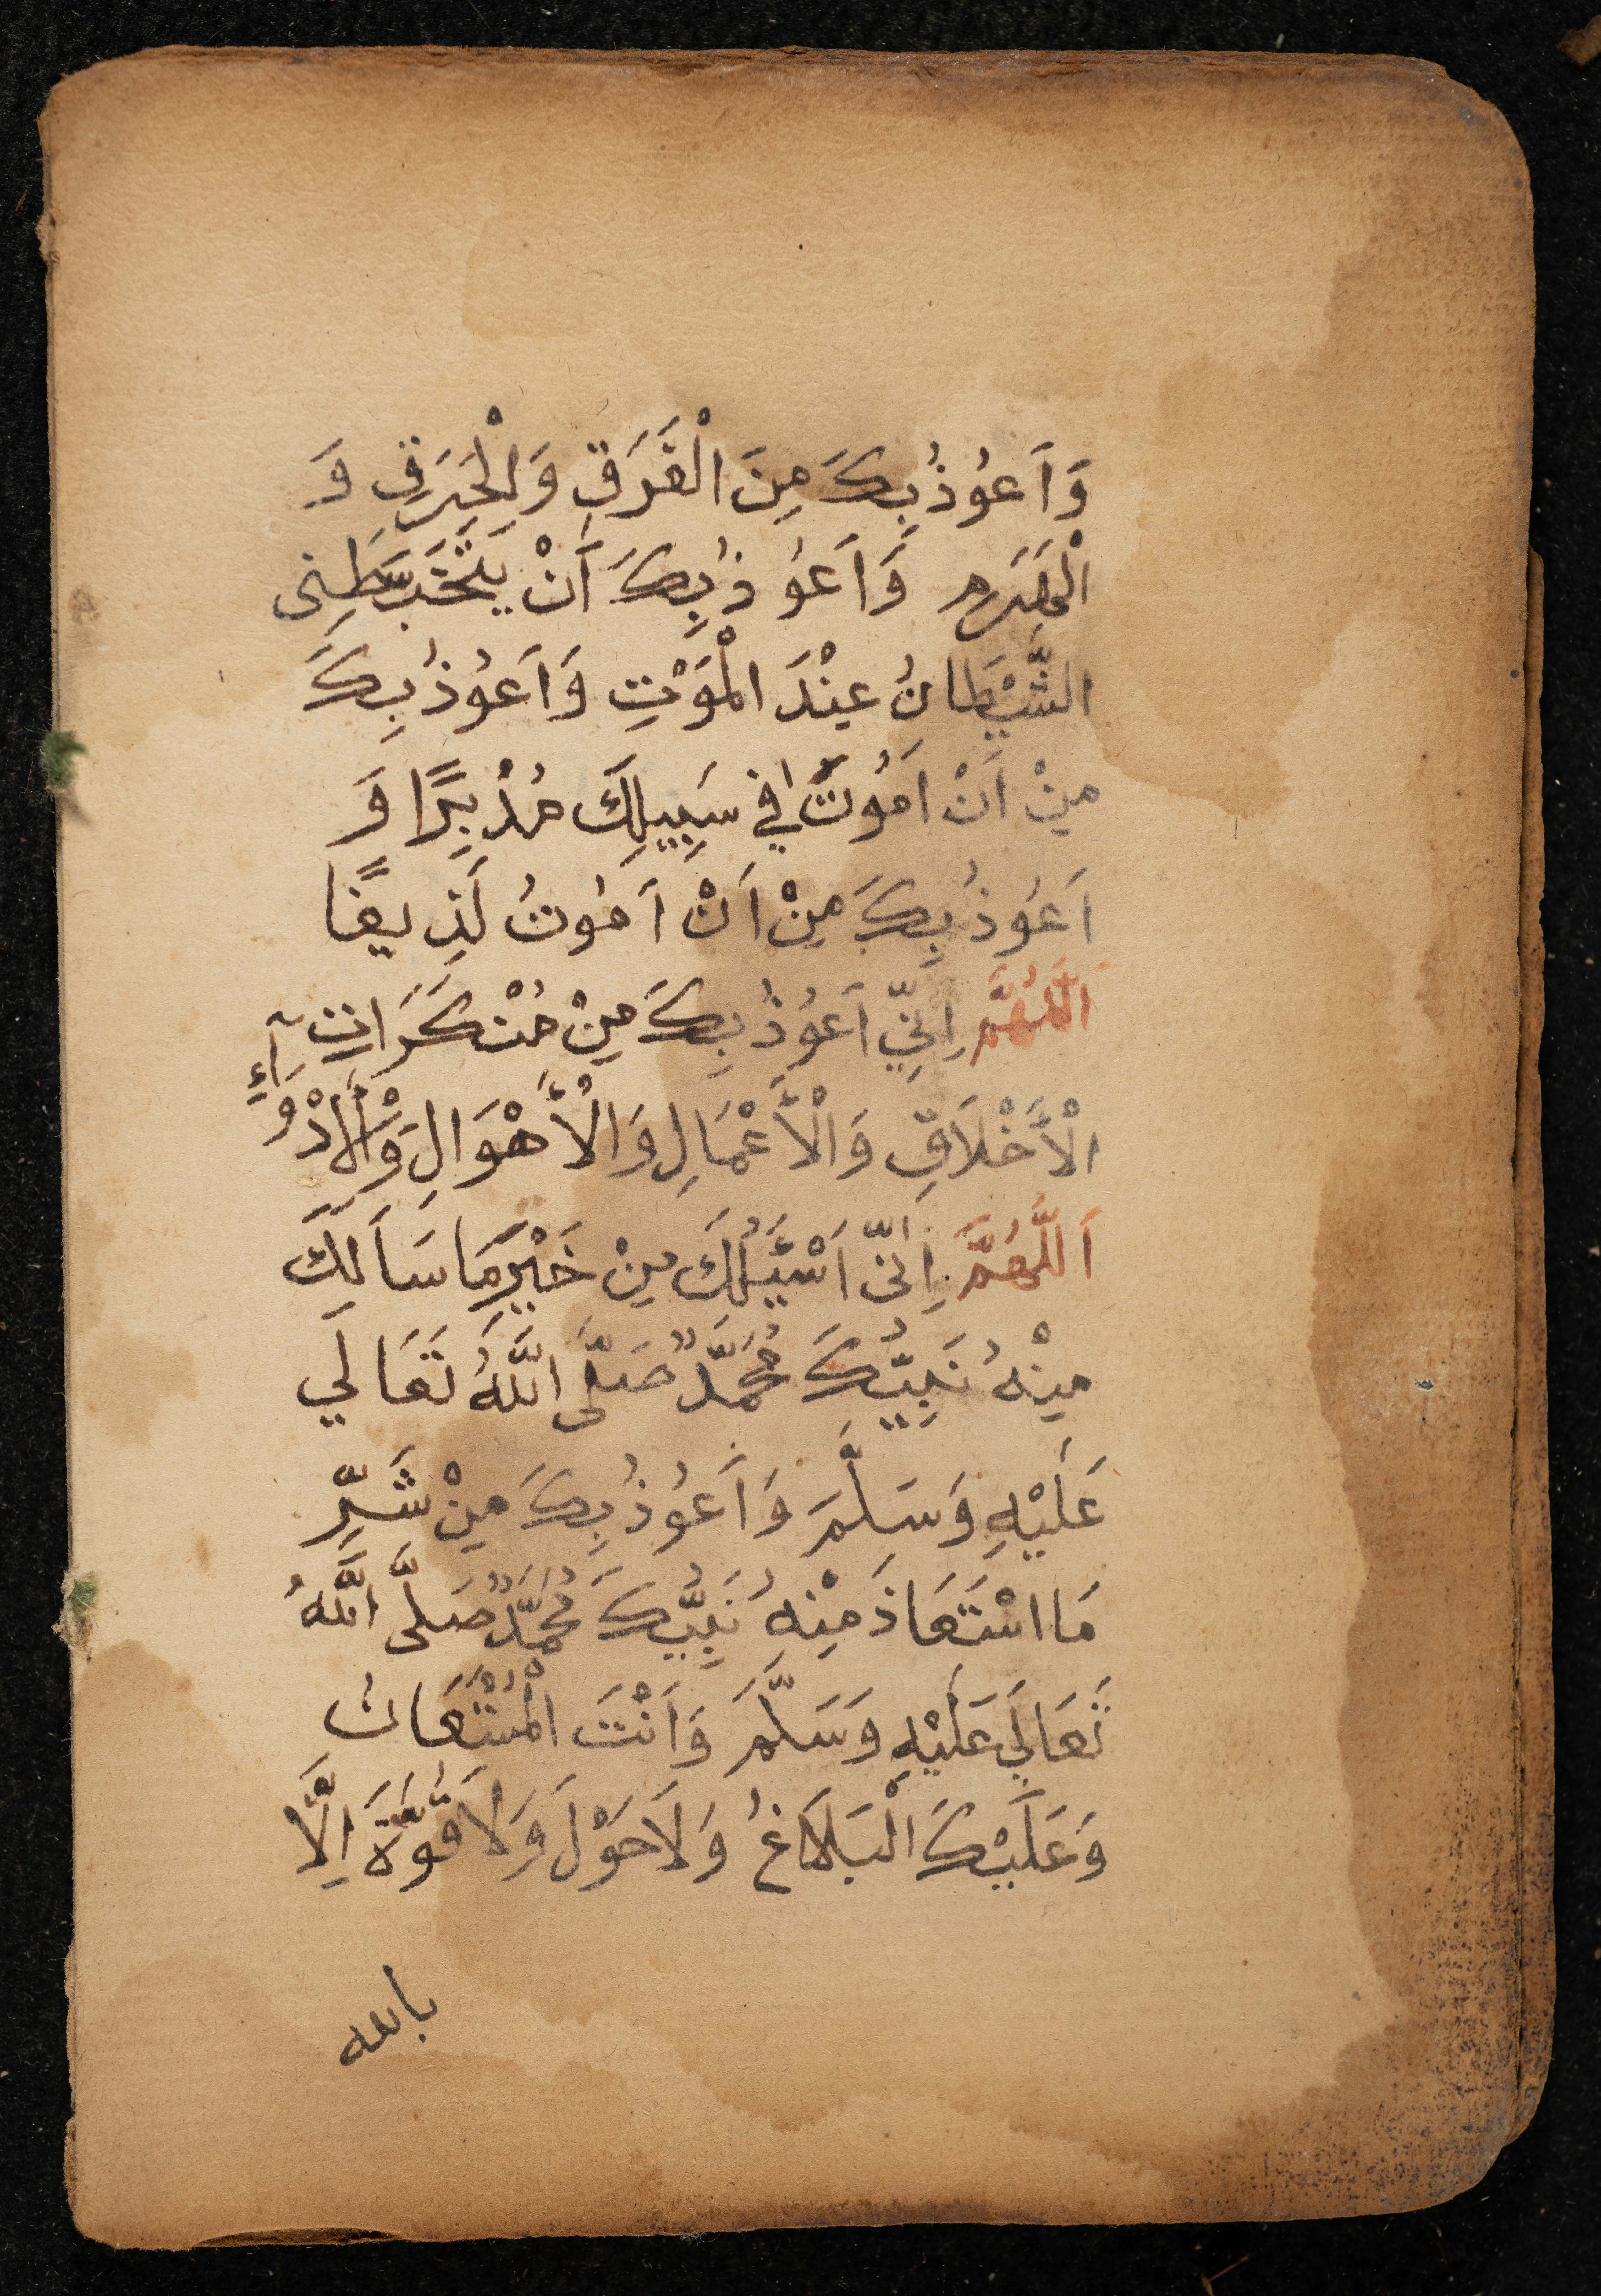 وَاَعُوْذُبِكَ مِنَ الْغَرَقِ وَالْحَرَقِ وَ
الْهَرَمِ وَاَعُوْذُبِكَ اَنْ يَتَخَبَّطَنِى
الشَّيْطَانُ عِنْدَ الْمَوْتِ وَاَعُوْذُبِكَ
مِنْ اَنْ اَمُوْتَ فِي سَبِيلِكَ مُدْبِرًا وَ
اَعُوْذُبِكَ مِنْ اَنْ اَمُوْتُ لَذِيغًا
اَللّٰهُمَّ اِنِّي اَعُوْذُبِكَ مِنْ مُنْكَرَاتِ
الْاَخْلَاقِ وَالْاَعْمَالِ وَالْاَهْوَالِ وَالْاَدْوَآءِ
اَللّٰهُمَّ اِنِّى اَسْئَلُكَ مِنْ خَيْرِ مَا سَاَلَكَ
مِنْهُ نَبِيُّكَ مُحَمَّدٌ صَلَّى اللّٰهُ تَعَالَي
عَلَيْهِ وَسَلَّمَ وَاَعُوْذُبِكَ مِنْ شَرِّ
مَا اسْتَعَاذَ مِنْهُ نَبِيُّكَ مُحَمَّدٌ صَلَّى اللّٰهُ
تَعَالَي عَلَيْهِ وَسَلَّمَ وَاَنْتَ الْمُسْتَعَانُ
وَعَلَيْكَ الْبَلَاغُ وَلَا حَوْلَ وَلَا قُوَّةَ اِلَّا
بالله